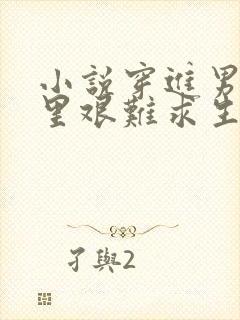 小説穿進男
里艰難求生
孑與2